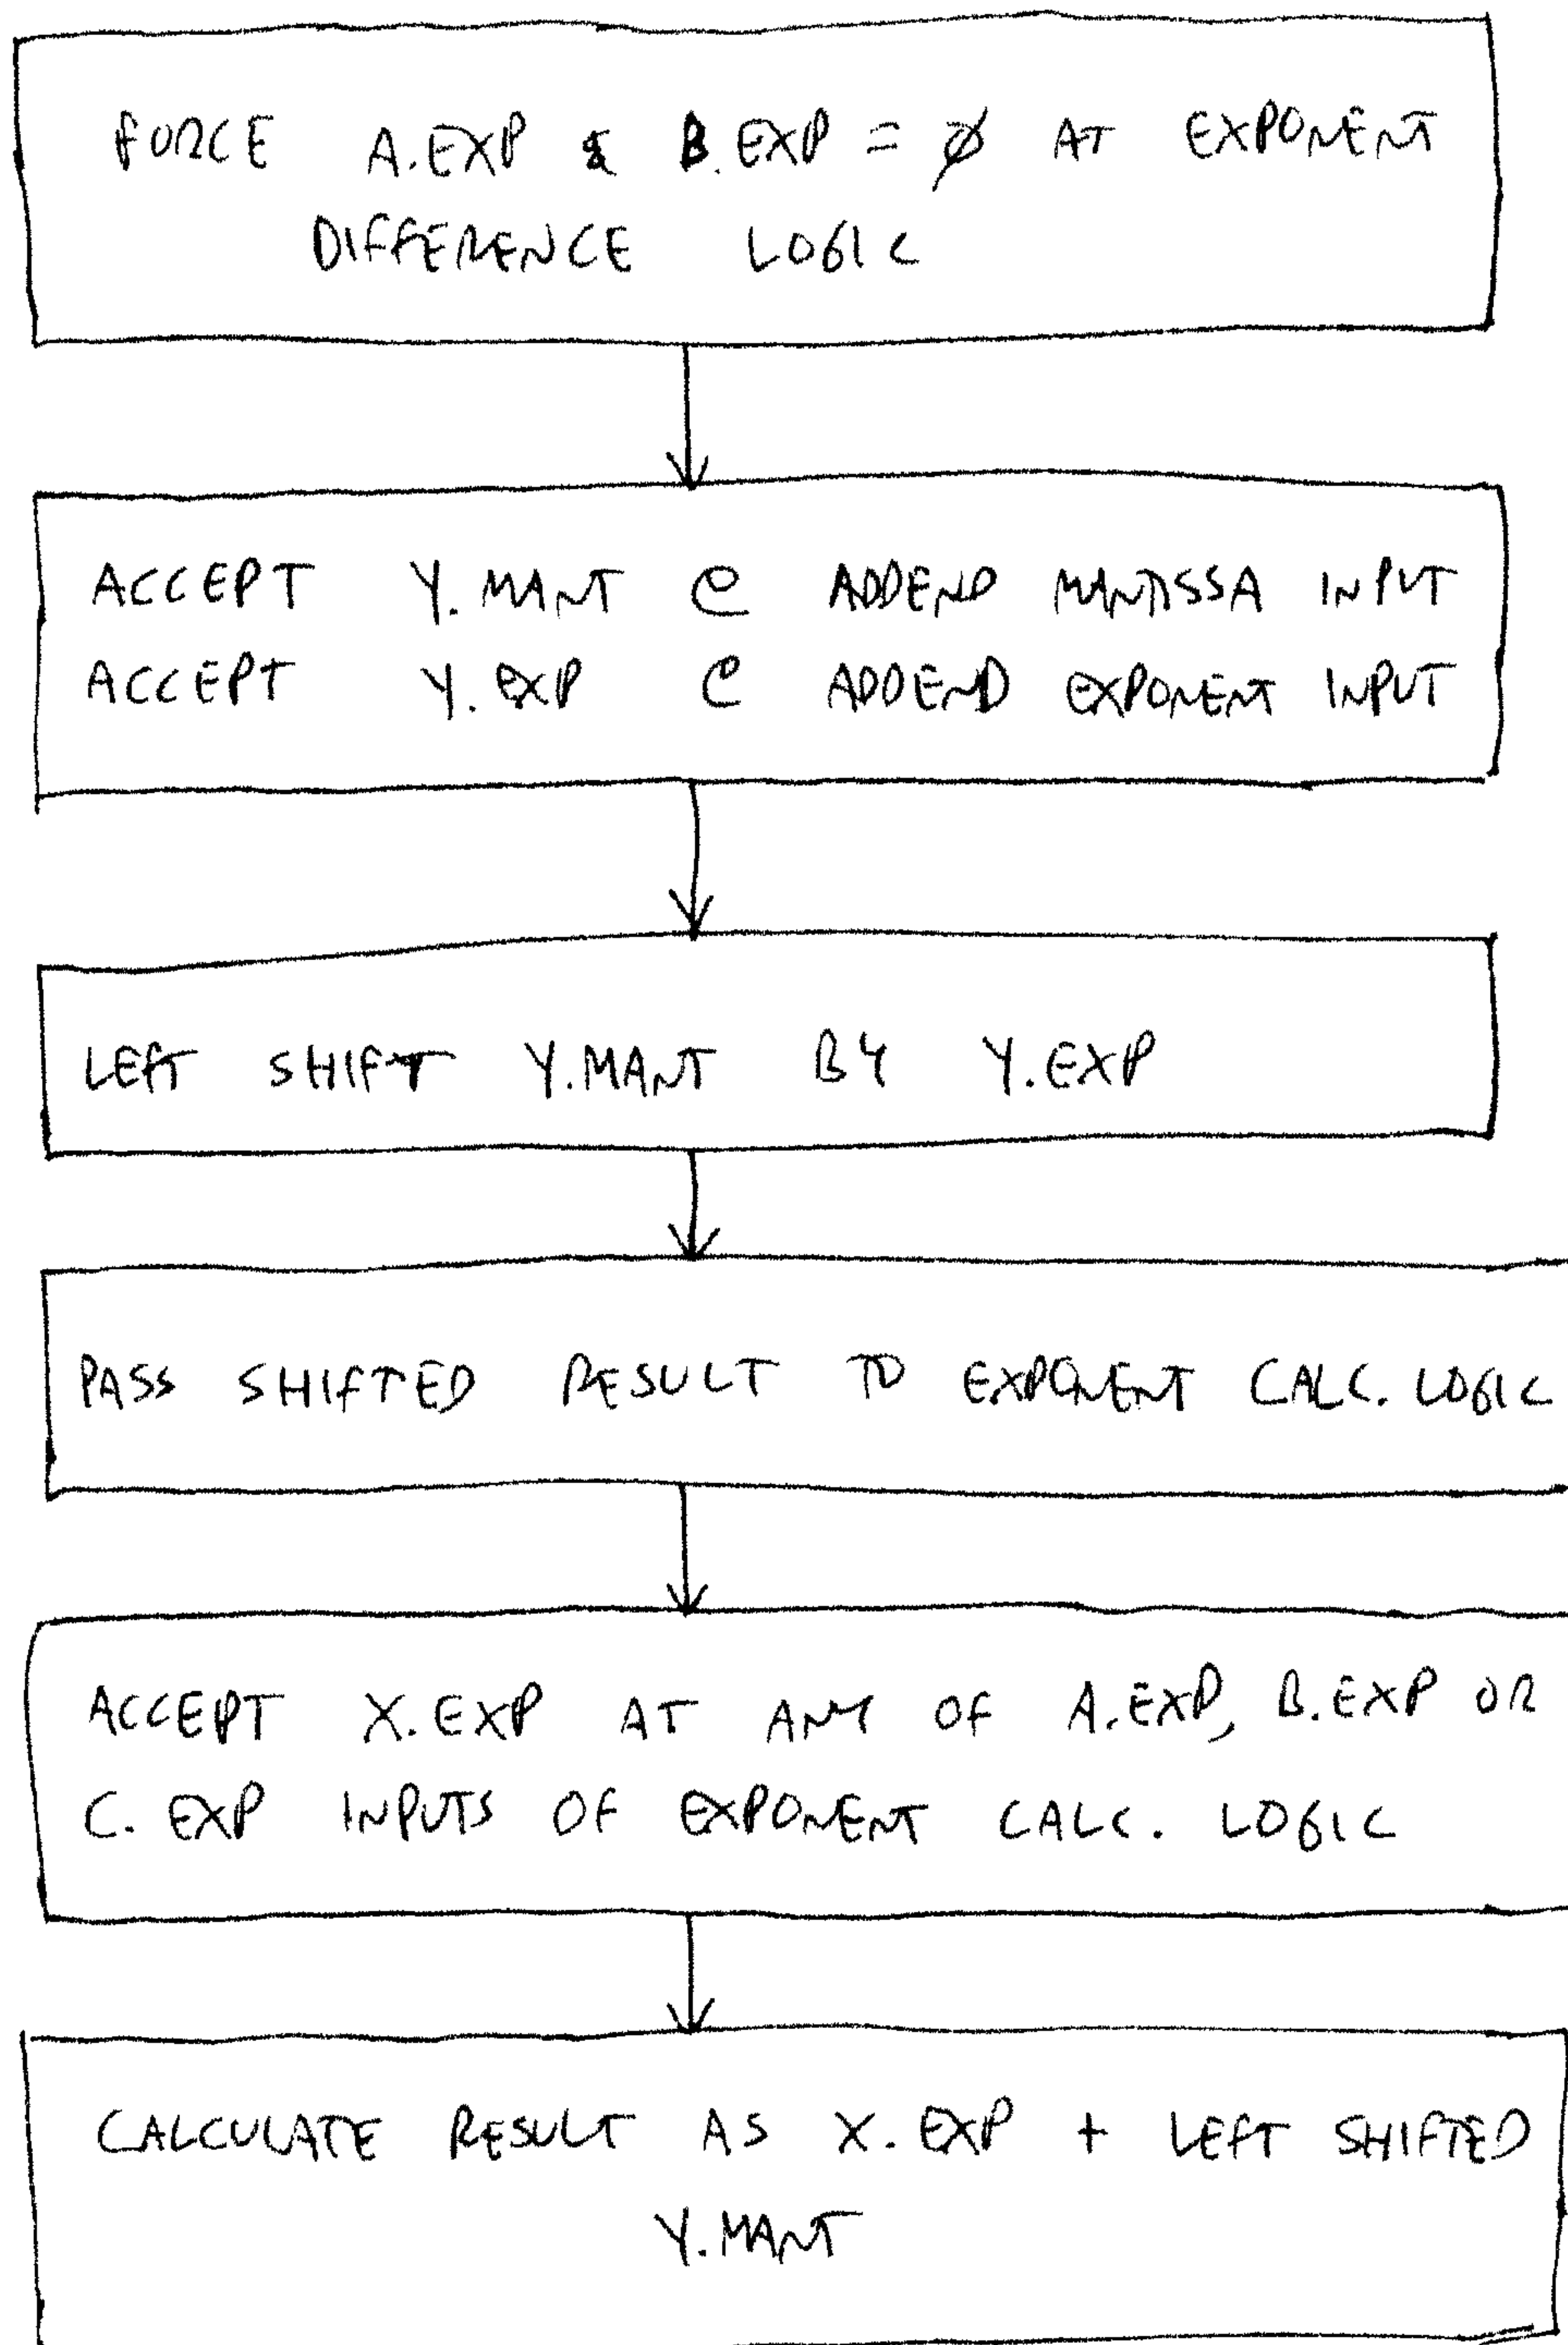 FORCE A.EXP & B.EXP = Ø AT EXPONENT
DIFFERENCE LOGIC
ACCEPT Y.MANT @ ADDEND MANTISSA INPUT
ACCEPT Y.EXP @ ADDEND EXPONENT INPUT
LEFT SHIFT Y.MANT BY Y.EXP
PASS SHIFTED RESULT TO EXPONENT CALC. LOGIC
ACCEPT X.EXP AT ANY OF A.EXP, B.EXP OR
C.EXP INPUTS OF EXPONENT CALC. LOGIC
CALCULATE RESULT AS X.EXP + LEFT SHIFTED
Y.MANT